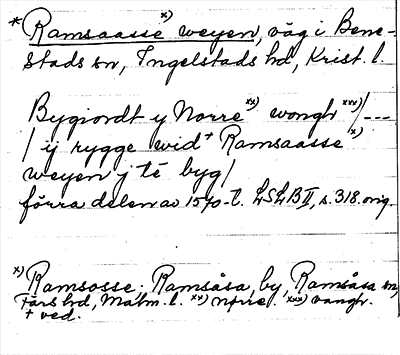 * Ramsaasse x) weyen, väg i Bene-
stads sn, Ingelstads hd, Krist. l.
Bygiordt y Norre xx) wongh xxx) /---
/ ij rygge wid + Ramsaasse x)
weyen j te byg/
förra delen av 1570-t. LSLB II, s. 318. orig.
x) Ramsosse: Ramsåsa, by, Ramsåsa sn,
Färs hd, Malm. l. xx) norre. xxx) vangh.
+ ved.